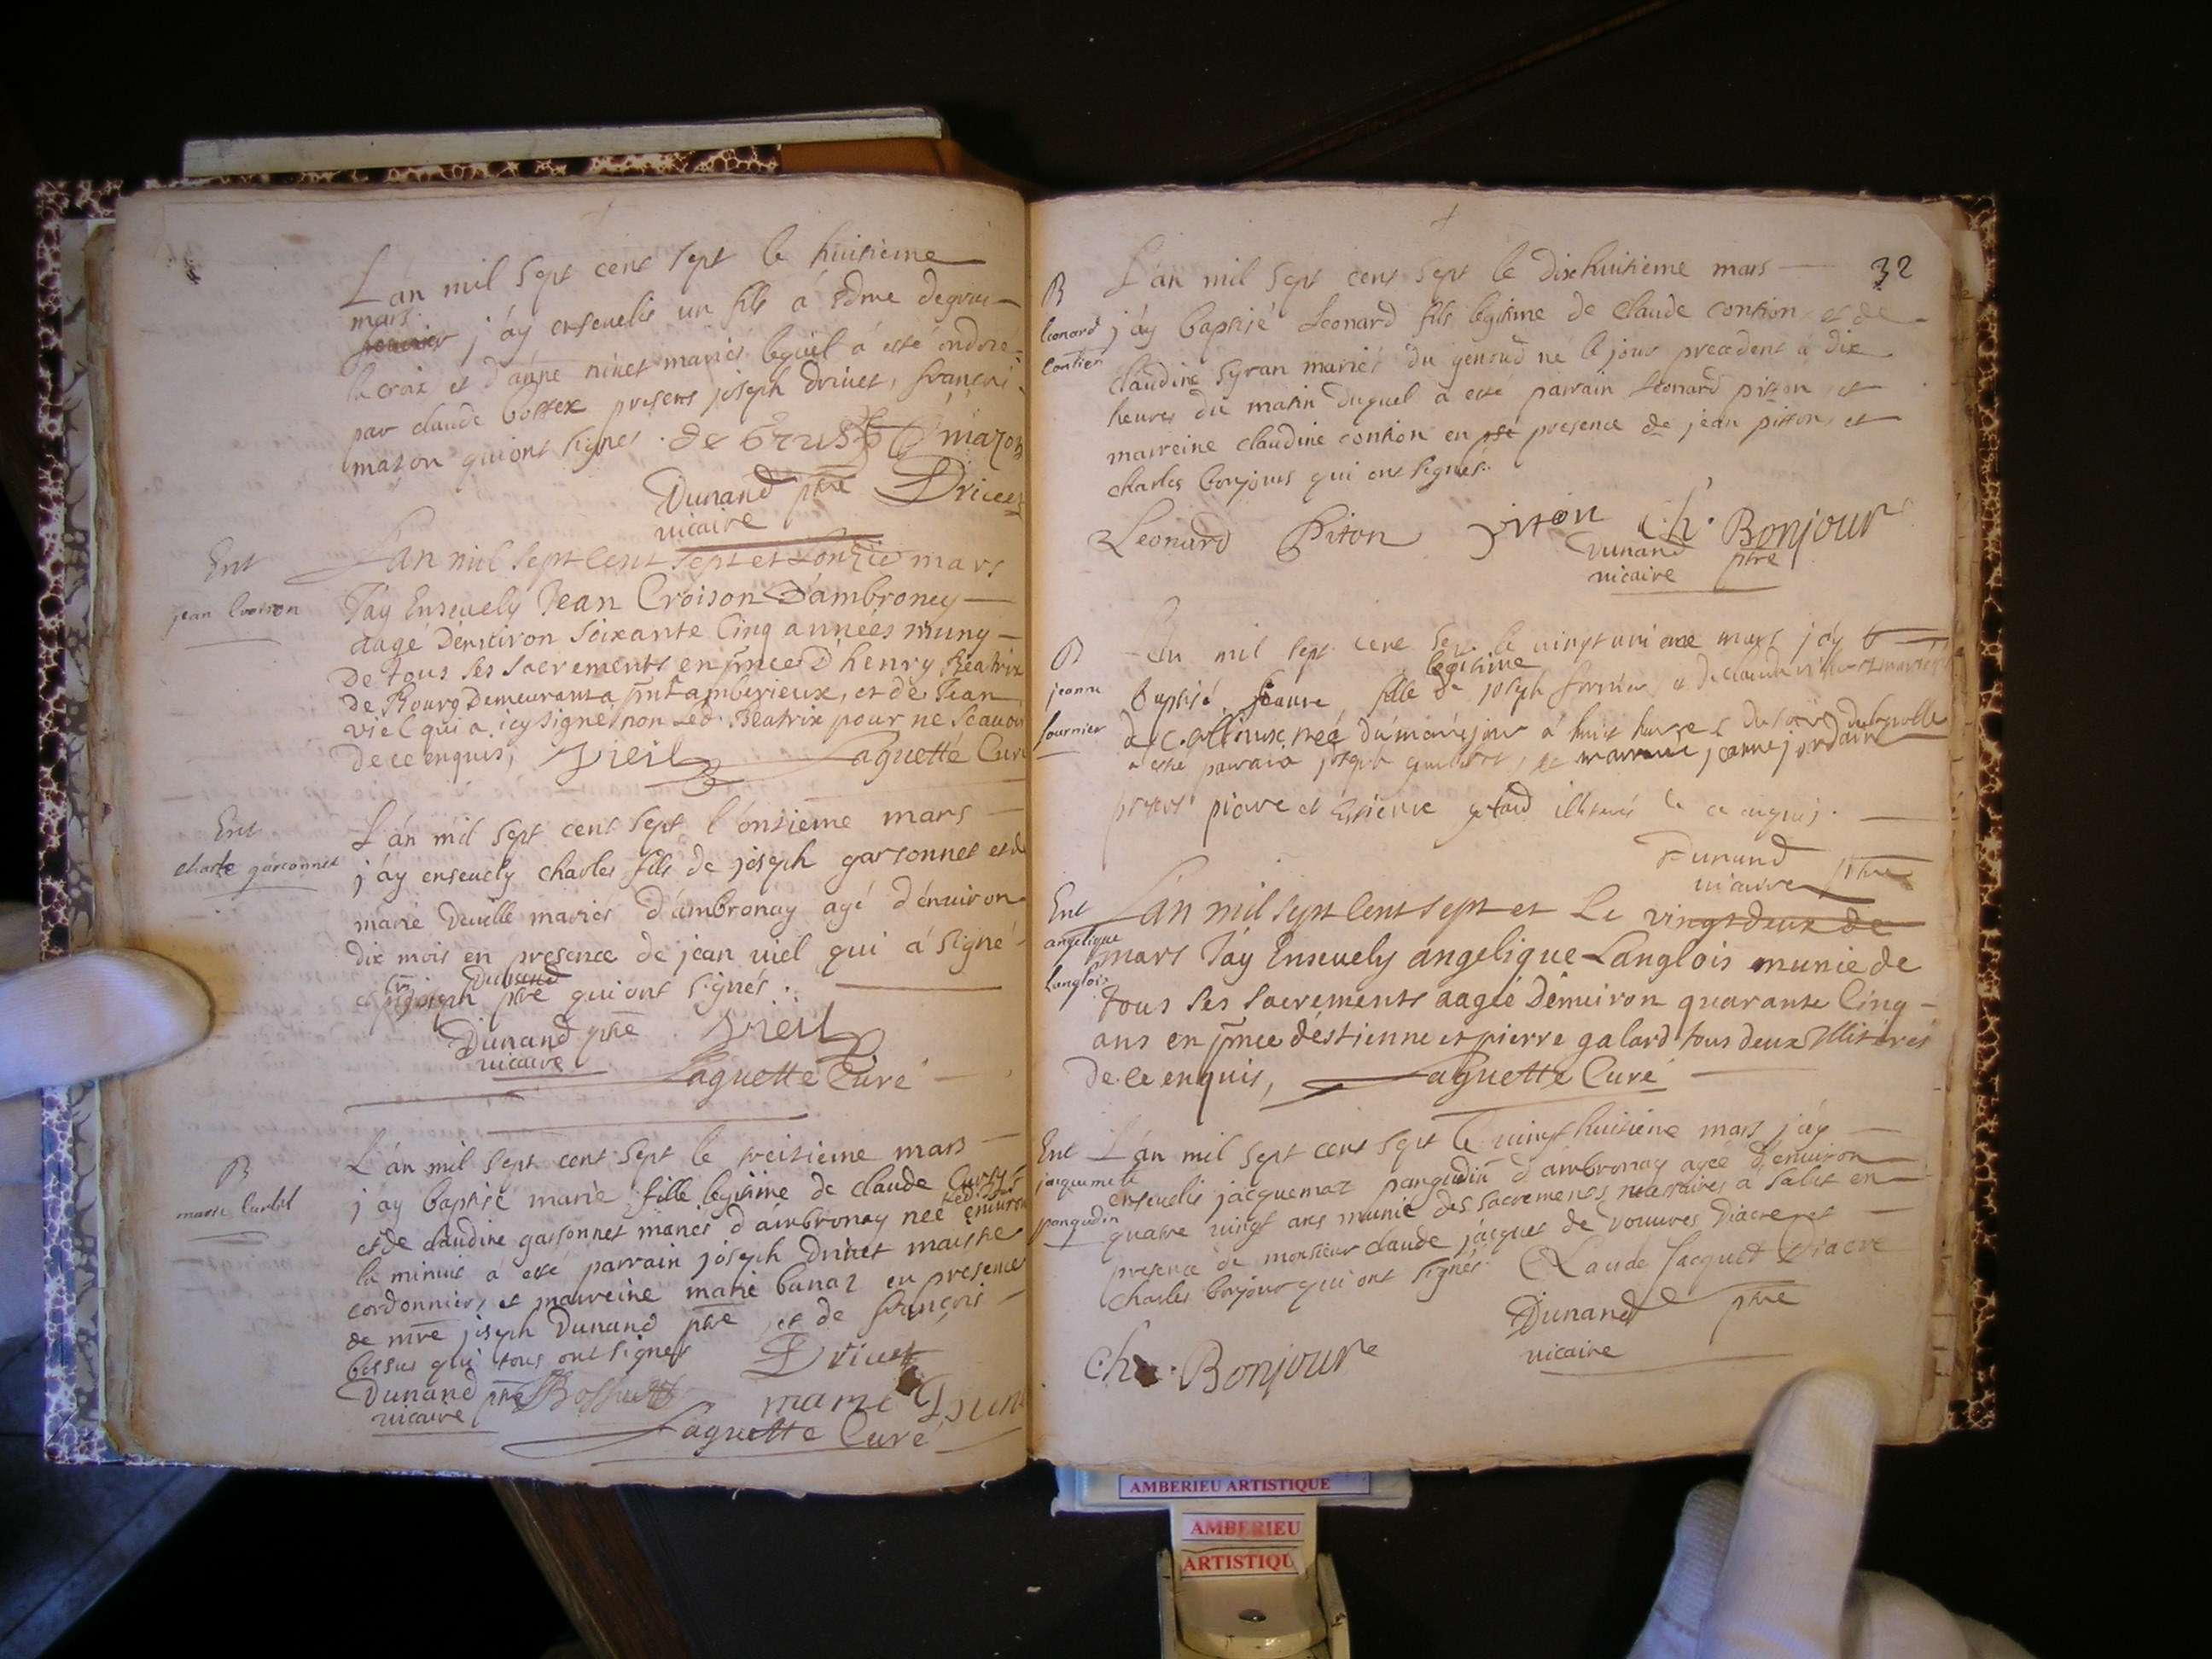 L'an mil sept cent sept le huitieme
mars
j'ay enseuelis un fils á edme degrau-
la croix et d'anne niuet mariés lequel á esté ondoié
par claude bossex presens joseph driuet, françoi
mazon qui ont signes . mazon
Dunand ptre Driuet
uicaire
Ent
jean croison
L'an mil sept Cent sept et L'onzie mars
J'ay Enseuely Jean Croison D'ambroney
aagé D'enuiron Soixante Cinq années muny
De tous ses sacrements en pnce D'henry Beatrix
De Bourg Demeurant a pnt amberieux, et de Jean
viel qui a icy signé non Led. Beatrix pour ne scauoi
De ce enquis, vieil Laguette Curé
Ent
charle garconnet
L'án mil sept cent sept l'ontieme mars
j'áy enseuely charles fils de joseph garsonnet et de
marie Deuille mariés d'ambronay agé d'énuiron
dix mois en presence de jean uiel qui á signé
et joseph Dunand ptre qui ont signés .
Dunand ptre vieil
uicaire
Laguette Curé
B
marie curtil
L'án mil sept cent sept le treitieme mars
j'ay baptisé marie fille legitime de claude
et de claudine garsonnet mariés d'ámbronay née enuiron
la minuit a esté parrain joseph Driuet maistre
cordonnier, et maureine marie banaz en presence
de mre joseph Dunand ptre, et de françois
bossus qui tous ont signes Driuet
Dunand ptre
uicaire
Laguette Curé
32
B
leonard
contion
L'án mil sept cent sept le dixhuitieme mars
j'áy baptisé Leonard fils legitime de claude contion, et de
claudine syran mariés du genoud né le jour precedent á dix
heures du matin duquel a esté parrain Leonard pitton, et
marreine claudine contion en pse presence de jean pitton, et
charles bonjours qui ont signés.
Leonard Piton piton Ch. Bonjour
Dunand ptre
uicaire
B
jeanne
fournier
L'an mil sept cent sept le uingtunieme mars j'áy b
legitime
baptisé jeanne, fille de joseph fornier
née du méme jour á huit heures du soir de laquelle
a esté parrain joseph, et marreine jeanne jordain
presens piere et estienne galard illiterés de ce enquis.
Dunand
uicaire ptre
Ent
angelique
Langlois
L'an mil sept Cent sept et Le vingtdeux de
mars J'ay Enseuely angelique Langlois munie de
tous ses sacrements aagée D'enuiron quarante Cinq
ans en pnce d'estienne et pierre galard tous deux illiterés
de ce enquis, Laguette Curé
Ent
jaquemete
pangudin
L'án mil sept cent sept le uingt huitiéme mars j'áy
enseuelis jacquemaz pangudin d'ámbronay agée d'enuiron
quatre uingt ans munie des sacremens necessaires a salut en
presence de monsieur claude jácquet de vouures Diacre, et
charles bonjour qui ont signés. Claude Jacquet Diacre
Dunand ptre
uicaire
Ch. Bonjour
AMBERIEU ARTISTIQUE
AMBERIEU
ARTISTIQU